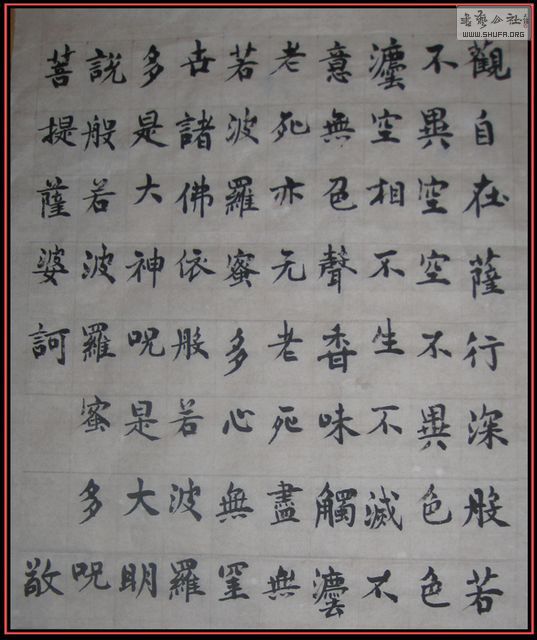 觀自在薩行深般若
不異空空不異色色
灋空相不生不滅不
意無色聲香味觸灋
老死亦无老死盡無
若波羅蜜多心無罣
世諸佛依般若波羅
多是大神呪是大明
說般若波羅蜜多呪
菩提薩婆訶 敬
書藝公社
WWW.SHUFA.ORG